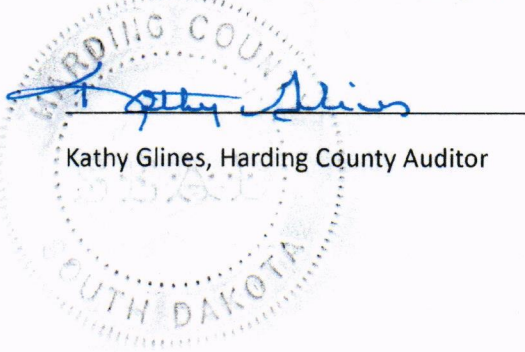 HARDING COUN
Kathy Glines
Kathy Glines, Harding County Auditor
SEAL
SOUTH DAKOTA